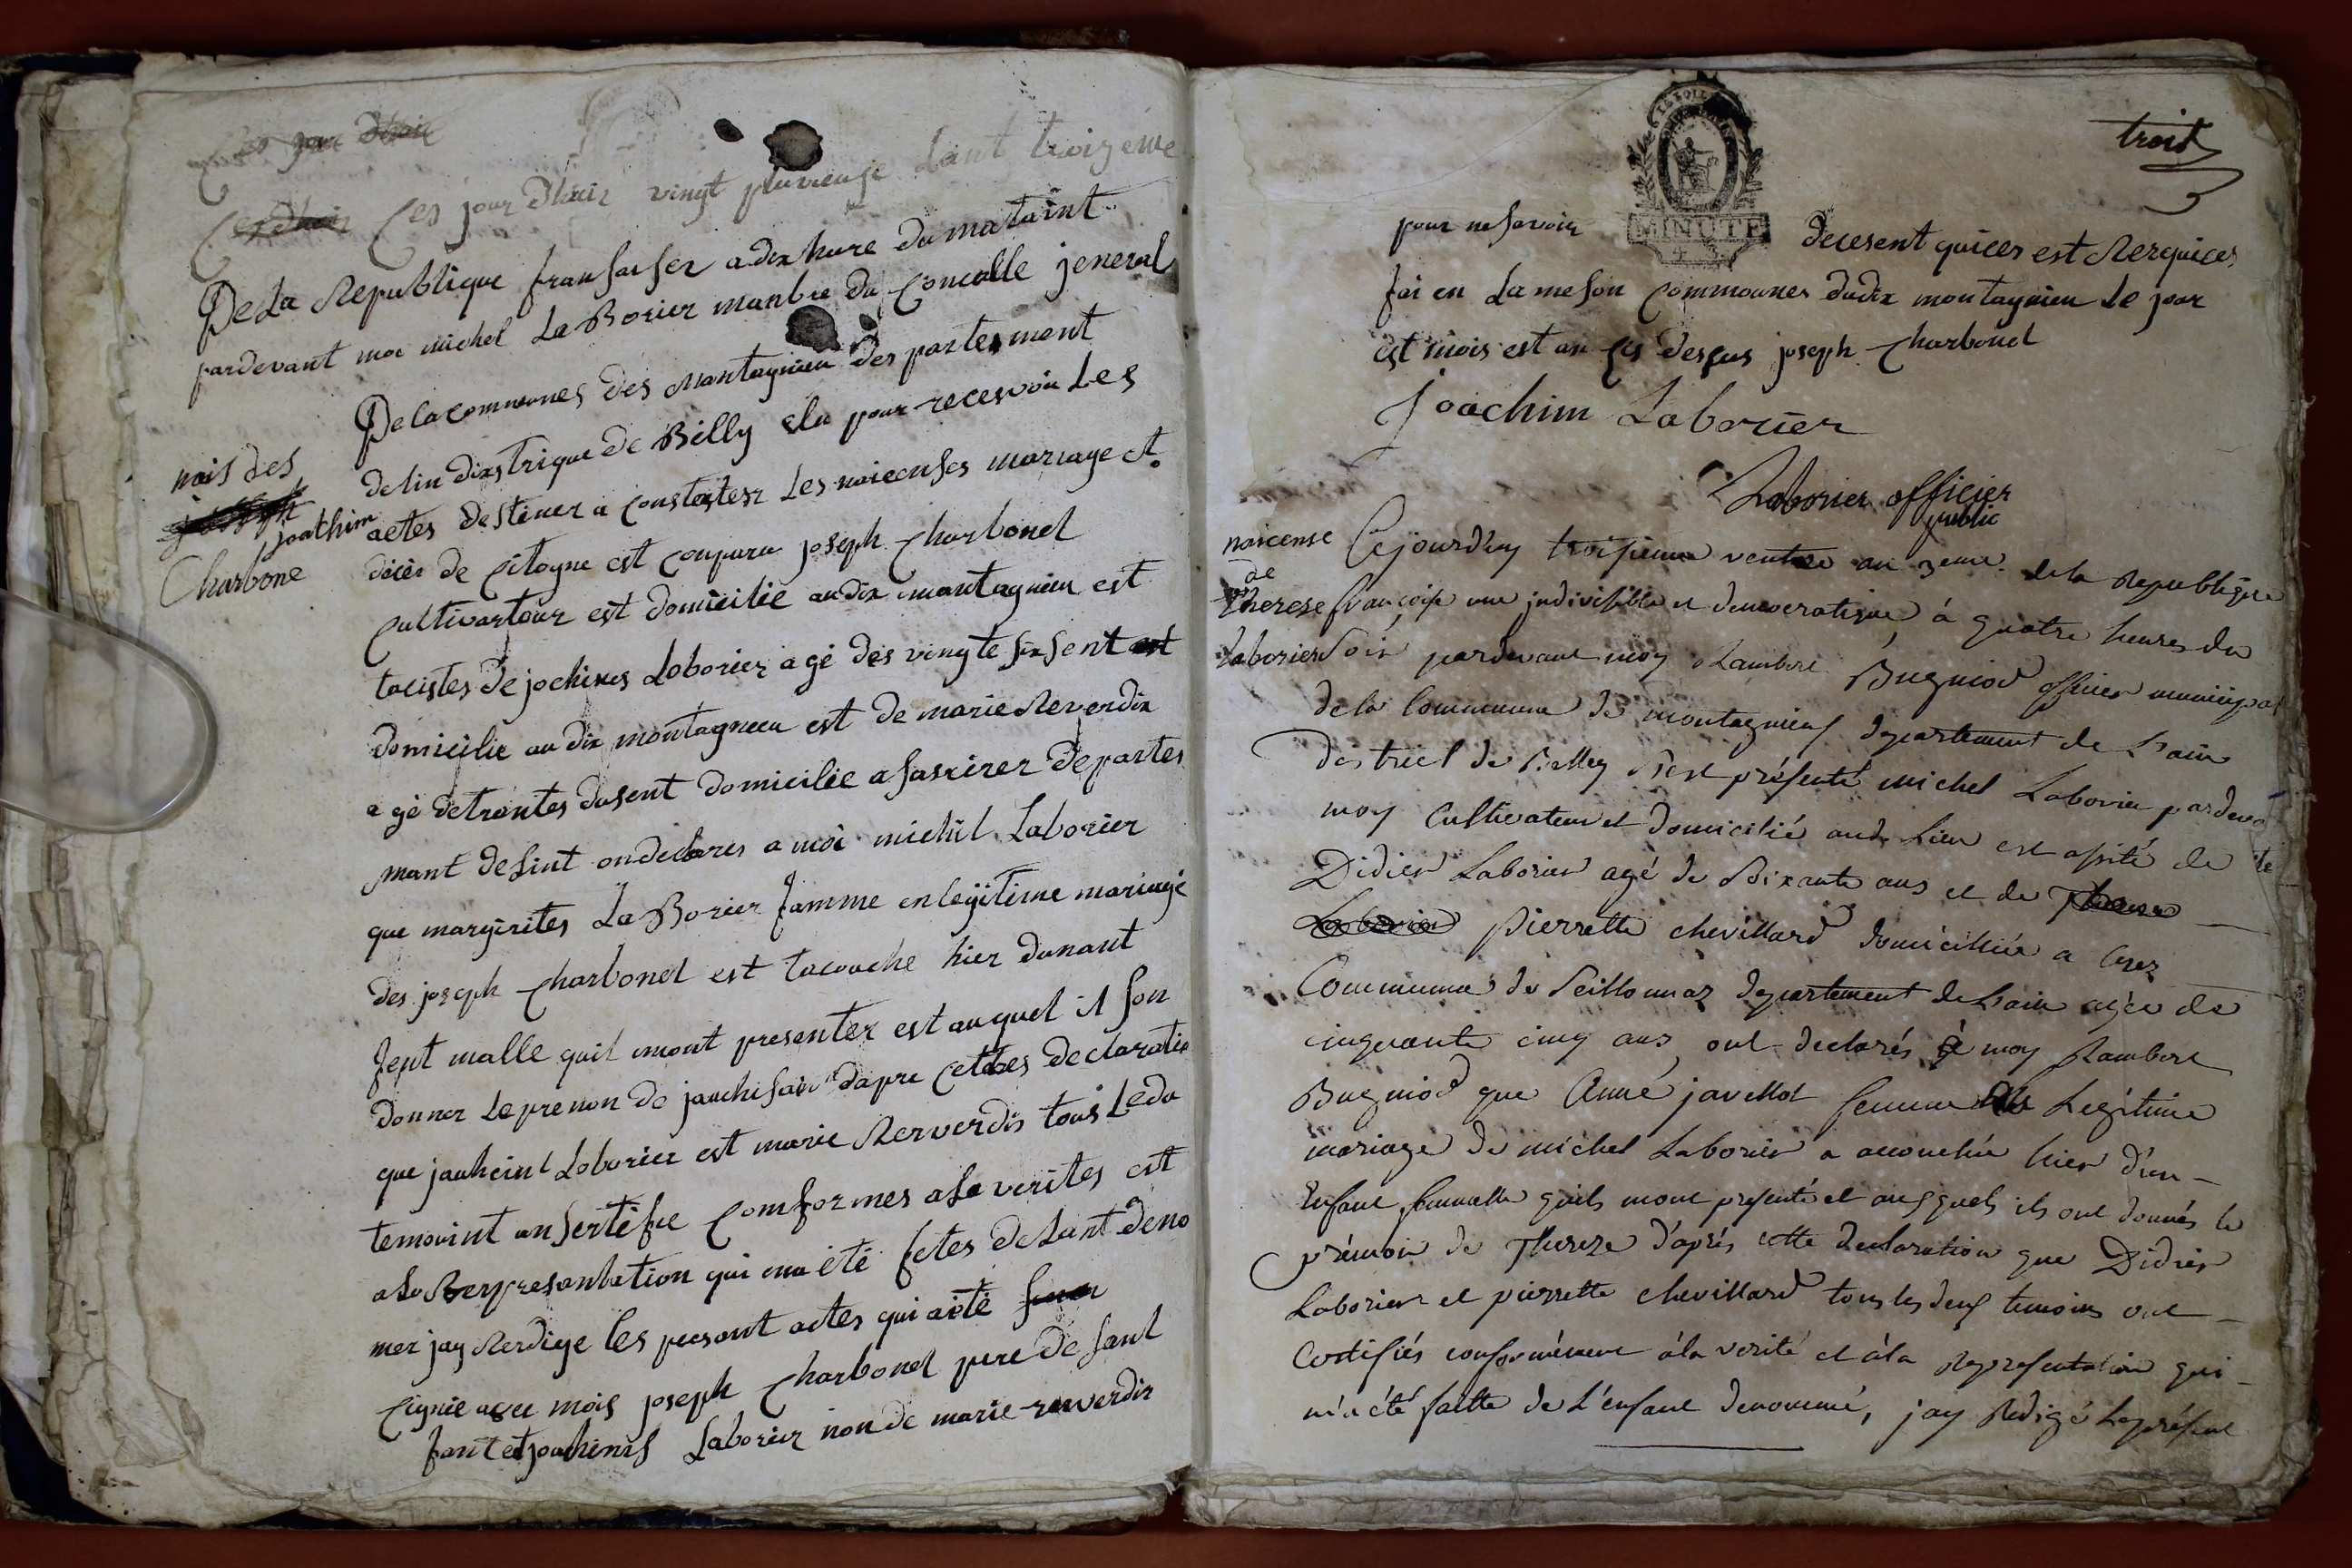 Ces jour dhuir vingt pluvieuse lant troizeme
De La Republique fransaiser a dix hure du mataint
pardevant moi michel Laborier manbre du Concalle jeneral
De la communes des Montagnieu des partement
delin dixstrique de Billy elu pour recesvoir Les
actes destiner a Constaster Les naicenses mariage et
décès de Citoyne est Conparu joseph Charbonel
nais des
joachim
Charbone
Cultivartour est domicilie audix montagnieu est
tacistes de jochimes Laborier a gé des vingte six sent
domicilie au dix montagnieu est de marie Reverdix
a gé detrantes dusent domicilie a saxirer departes
mant deLint on declares a moi michil Laborier
que margirites LaBorier famme en legitime mariage
des joseph Charbonel est tacouche hier dunant
fent malle quil mont presenter est auquel il son
donner Le prenon de jauchi dapre Cettes declaratio
que jauheint Laborier est marie Rerverdis tous Le du
temoint on sertifie Comformes a la verites est
a la Rerpresantation qui ma été fetes de Lant deno
mer jay Rerdige les presant actes qui aité
Cignie avec mois joseph Charbonel pere de Lant
fant et jouhims Laborier non de marie reverdir
troist
MINUTE
pour ne savoir decesent quices est Rerquices
fai en La meson Commounes dudix montagnieu Le jour
est mois est an Cis dessus joseph Charbonel
Joachim Laborier
Laborier officier
public
naicense
de
therese
Laborier
Cejourdhuy troisieme ventose an 3eme de la Republique
françoise une indivisible et democratique, à quatre heures du
Soir pardevant moy Rambert Bugniod officier municipal
de la Commune de montagnieu departement de L'ain
destrict de Belley s'est présenté michel Laborier pardevant
moy Cultivateur et domicilié aud. Lieu est assité de
Didier Laborier agé de Soixante ans et de
pierrette chevillard domiciliée a Crez
Commune de Seillonnaz departement de Lain agée de
cinquante cinq ans, ont declarés à moy Rambert
Bugniod que Anne javellot femme Legitime
mariage de michel Laborier a accouchée hier d'un
Enfant femmelle quils mont presenté et auquels ils ont donnés le
prénom de Thereze d'aprés cette declaration que Didier
Laborier et pierrette chevillard tous les deux temoins ont
Certifiés conformément à la verité et à la Representation qui
m'a été faitte de L'enfant denommé, jay Redigé Le présent